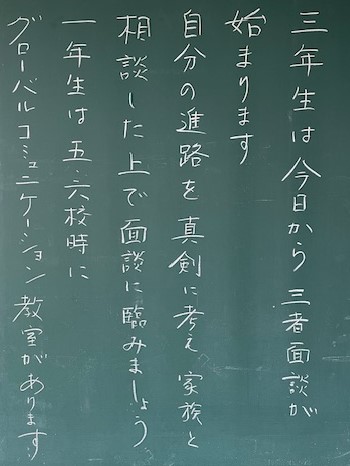 三年生は今日から三者面談が
始まります
自分の進路を真剣に考え家族と
相談した上で面談に臨みましょう
一年生は五・六校時に
グローバルコミュニケーション教室があります